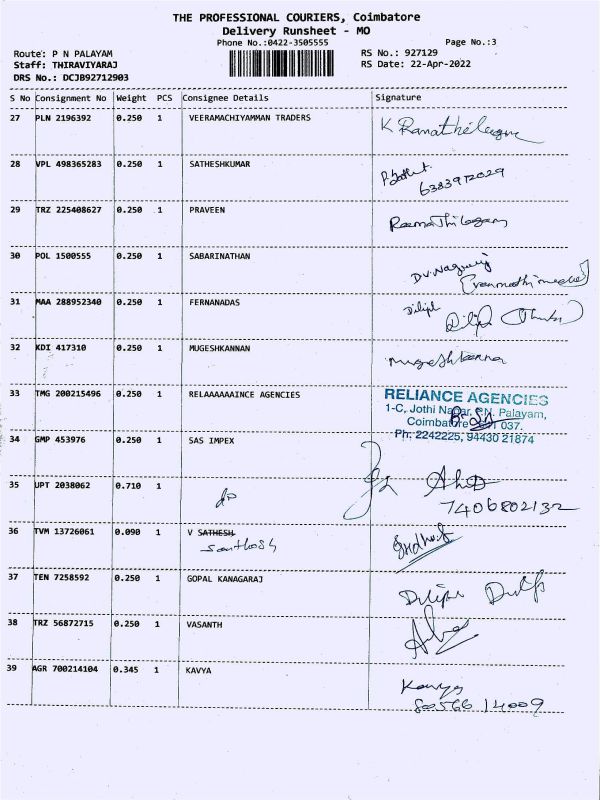 THE PROFESSIONAL COURIERS, Coimbatore
Delivery Runsheet - MO
Phone No.:0422-3505555 Page No.:3
Route: P N PALAYAM RS No.: 927129
Staff: THIRAVIYARAJ RS Date: 22-Apr-2022
DRS No.: DCJB92712903
S No Consignment No Weight PCS Consignee Details Signature
27 PLN 2196392 0.250 1 VEERAMACHIYAMMAN TRADERS
28 VPL 498365283 0.250 1 SATHESHKUMAR
6383912029
29 TRZ 225408627 0.250 1 PRAVEEN
30 POL 1500555 0.250 1 SABARINATHAN
31 MAA 288952340 0.250 1 FERNANADAS Dilip
32 KDI 417310 0.250 1 MUGESHKANNAN Mugeshkannan
33 TMG 200215496 0.250 1 RELAAAAAAINCE AGENCIES RELIANCE AGENCIES
1-C, Jothi Nagar, P.N. Palayam,
Coimbatore 037.
Ph: 2242225, 94430 21874
34 GMP 453976 0.250 1 SAS IMPEX
35 UPT 2038062 0.710 1 do
7406802132
36 TVM 13726061 0.090 1 V SATHESH
Santhosh
37 TEN 7258592 0.250 1 GOPAL KANAGARAJ
38 TRZ 56872715 0.250 1 VASANTH
39 AGR 700214104 0.345 1 KAVYA Kavya
8056614009